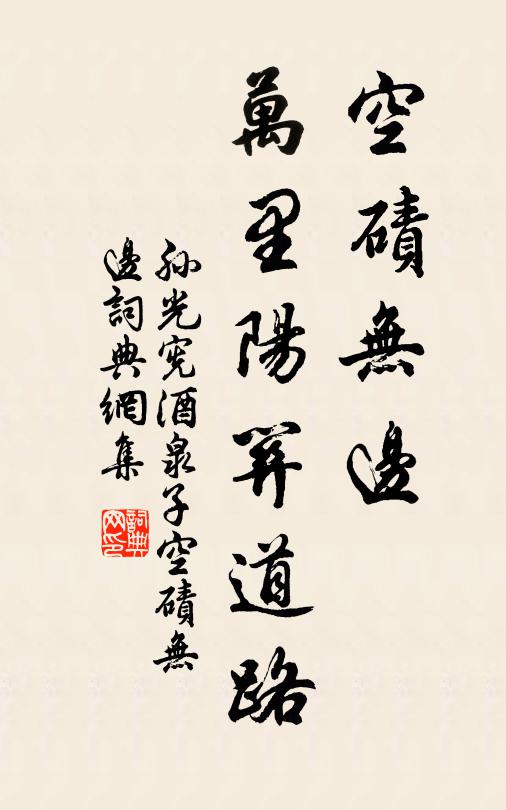 空磧無邊
萬里陽關道路
孫光憲酒泉子空磧無
邊詞典網集
詞典
网印